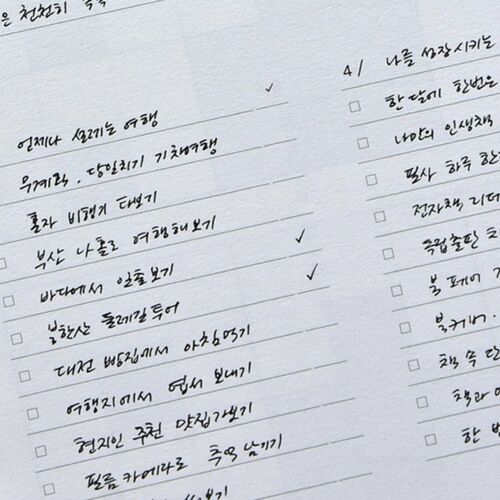 은 천천히
언제나 설레는 여행
무계획, 당일치기 기차여행
혼자 비행기 타보기
부산 나홀로 여행해보기
바다에서 일출보기
북한산 둘레길 투어
대전 빵집에서 아침먹기
여행지에서 엽서 보내기
현지인 추천 맛집가보기
필름카메라로 추억 남기기
보기
4/ 나를 성장시키는
한 달에 한번은
나만의 인생책
필사 하루 한
전자책 리더
독립출판
북페어
북커버.
책 속 단
책과
한